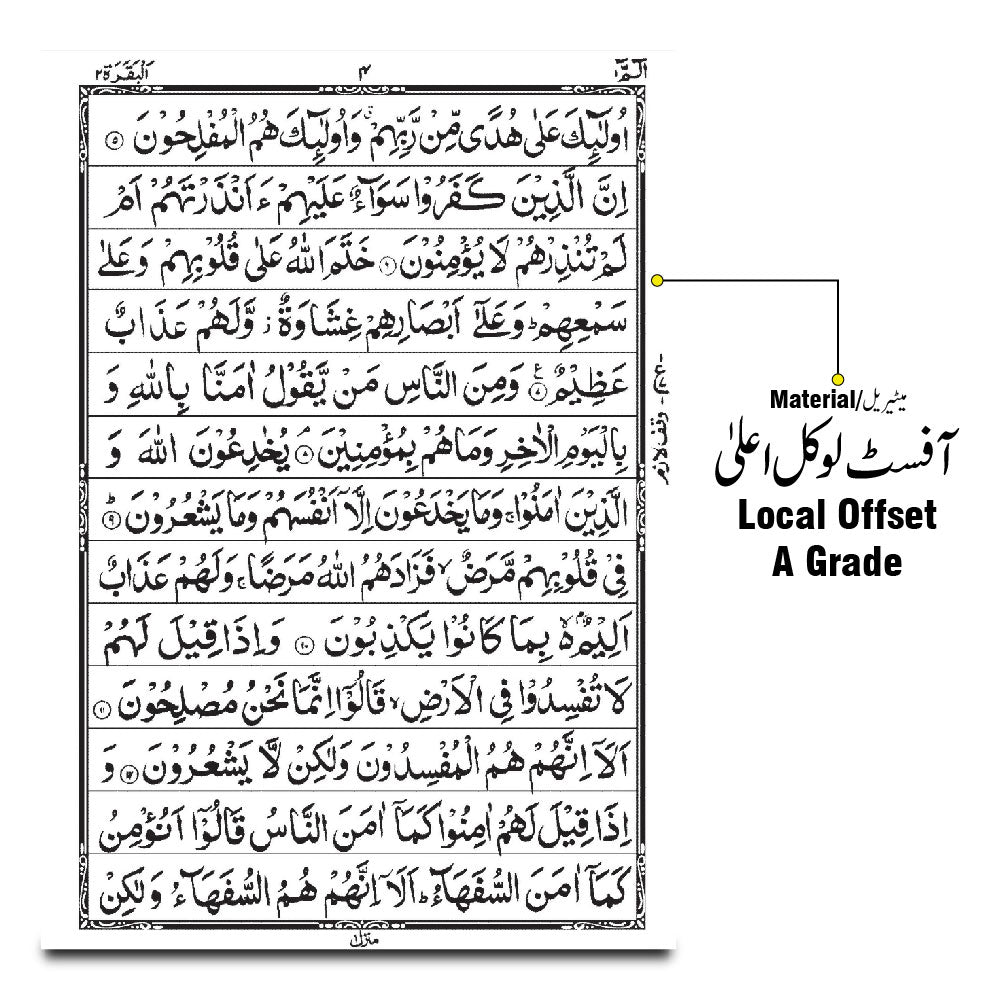 الٓمّٓ ١
۴
اَلْبَقَرَة ٢
اُولٰٓئِكَ عَلٰى هُدًى مِّنْ رَّبِّهِمْ ۙ وَاُولٰٓئِكَ هُمُ الْمُفْلِحُوْنَ ۝٥
اِنَّ الَّذِيْنَ كَفَرُوْا سَوَآءٌ عَلَيْهِمْ ءَاَنْذَرْتَهُمْ اَمْ
لَمْ تُنْذِرْهُمْ لَا يُؤْمِنُوْنَ ۝٦ خَتَمَ اللّٰهُ عَلٰى قُلُوْبِهِمْ وَعَلٰى
سَمْعِهِمْ ؕ وَعَلٰٓى اَبْصَارِهِمْ غِشَاوَةٌ ز وَّلَهُمْ عَذَابٌ
عَظِيْمٌ ۝ وَمِنَ النَّاسِ مَنْ يَّقُوْلُ اٰمَنَّا بِاللّٰهِ وَ
بِالْيَوْمِ الْاٰخِرِ وَمَا هُمْ بِمُؤْمِنِيْنَ ۝٨ يُخٰدِعُوْنَ اللّٰهَ وَ
الَّذِيْنَ اٰمَنُوْا ۚ وَمَا يَخْدَعُوْنَ اِلَّآ اَنْفُسَهُمْ وَمَا يَشْعُرُوْنَ ۝٩ؕ
فِيْ قُلُوْبِهِمْ مَّرَضٌ ۙ فَزَادَهُمُ اللّٰهُ مَرَضًا ۚ وَلَهُمْ عَذَابٌ
اَلِيْمٌۢ ۙ بِمَا كَانُوْا يَكْذِبُوْنَ ۝١٠ وَاِذَا قِيْلَ لَهُمْ
لَا تُفْسِدُوْا فِي الْاَرْضِ ۙ قَالُوْٓا اِنَّمَا نَحْنُ مُصْلِحُوْنَ ۝١١
اَلَآ اِنَّهُمْ هُمُ الْمُفْسِدُوْنَ وَلٰكِنْ لَّا يَشْعُرُوْنَ ۝١٢ وَ
اِذَا قِيْلَ لَهُمْ اٰمِنُوْا كَمَآ اٰمَنَ النَّاسُ قَالُوْٓا اَنُؤْمِنُ
كَمَآ اٰمَنَ السُّفَهَآءُ ؕ اَلَآ اِنَّهُمْ هُمُ السُّفَهَآءُ وَلٰكِنْ
منزل ١
وقف لازم
Material/میٹیریل
آفسٹ لوکل اعلیٰ
Local Offset
A Grade